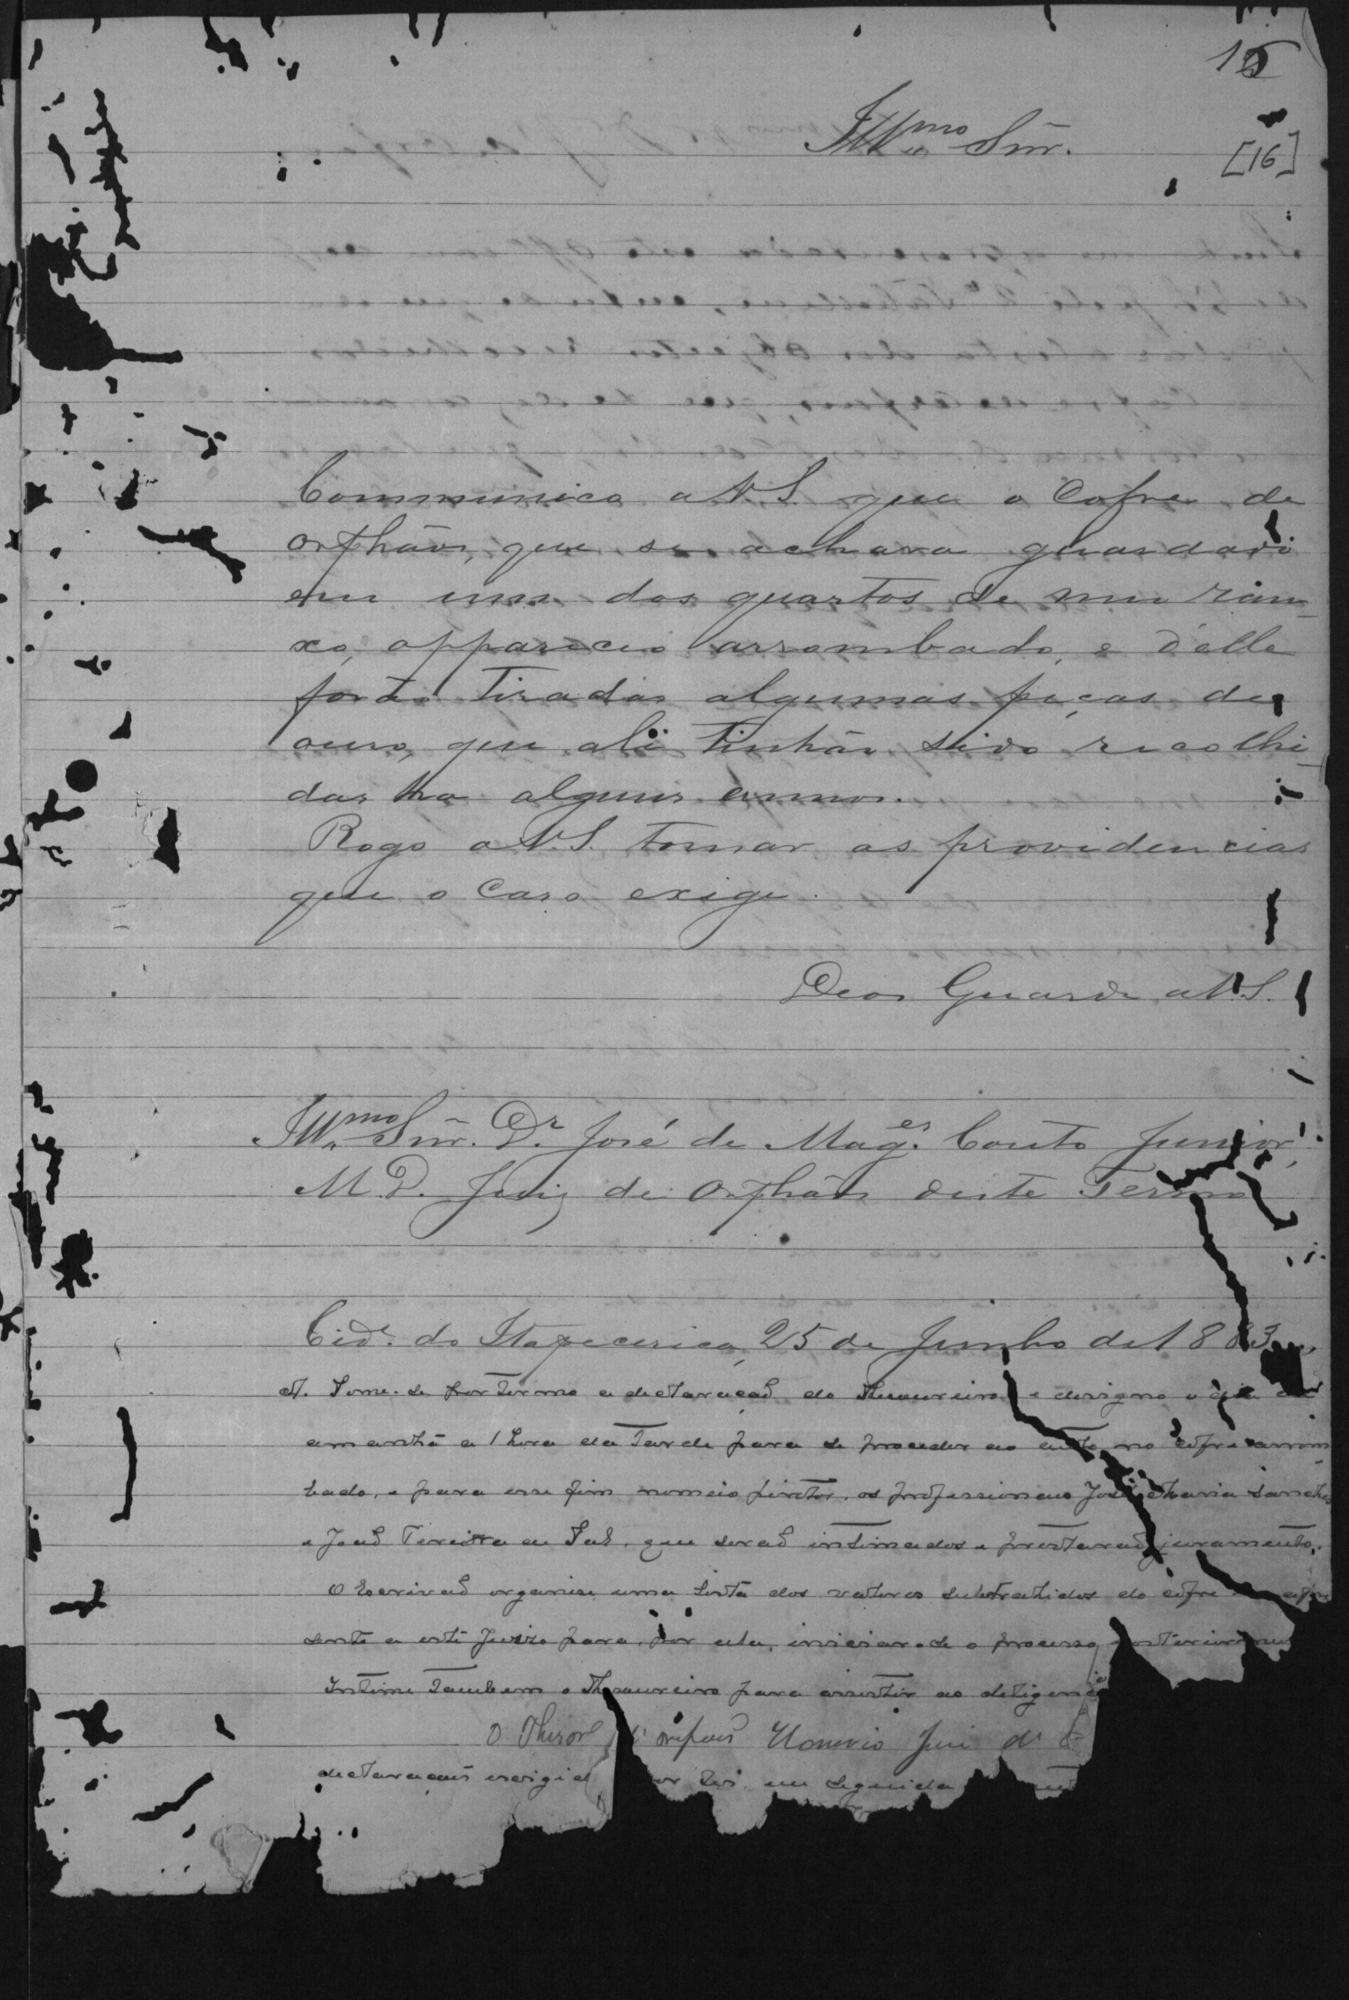 15
[16]
Illmo Snr.
Communico a V. S. que o Cofre de
orphãos, que se achava guardado
em um dos quartos de mim ran-
xo, appareceo arrombado, e d'elle
forão tiradas algumas peças de
ouro, que ali tinhão sido recolhi-
das ha alguns annos.
Rogo a V. S. tomar as providencias
que o caso exige.
Deos Guarde a V. S.
Illmo Snr. Dr. José de Mag.es Couto Junior,
M. D. Juiz de Orphãos deste Termo
Cid.e do Itapecerica, 25 de Junho de 1883
A. Tome-se por termo a declaração do Thesoureiro e designo o dia de
amanhã a 1 hora da tarde para se proceder ao auto no cofre arrom
bado, e para esse fim nomeio peritos os professionaes José Maria Sanches
e João Pereira da Sal. que serão intimados e prestarão juramento.
O Escrivão organise uma lista dos valores subtrahidos do cofre
sente a este Juizo para, por ella, iniciar-se o processo
Intime tambem o Thesoureiro para assistir as diligenci
O Thesor orfaos Honorio
declarações exigid por lei em seguida